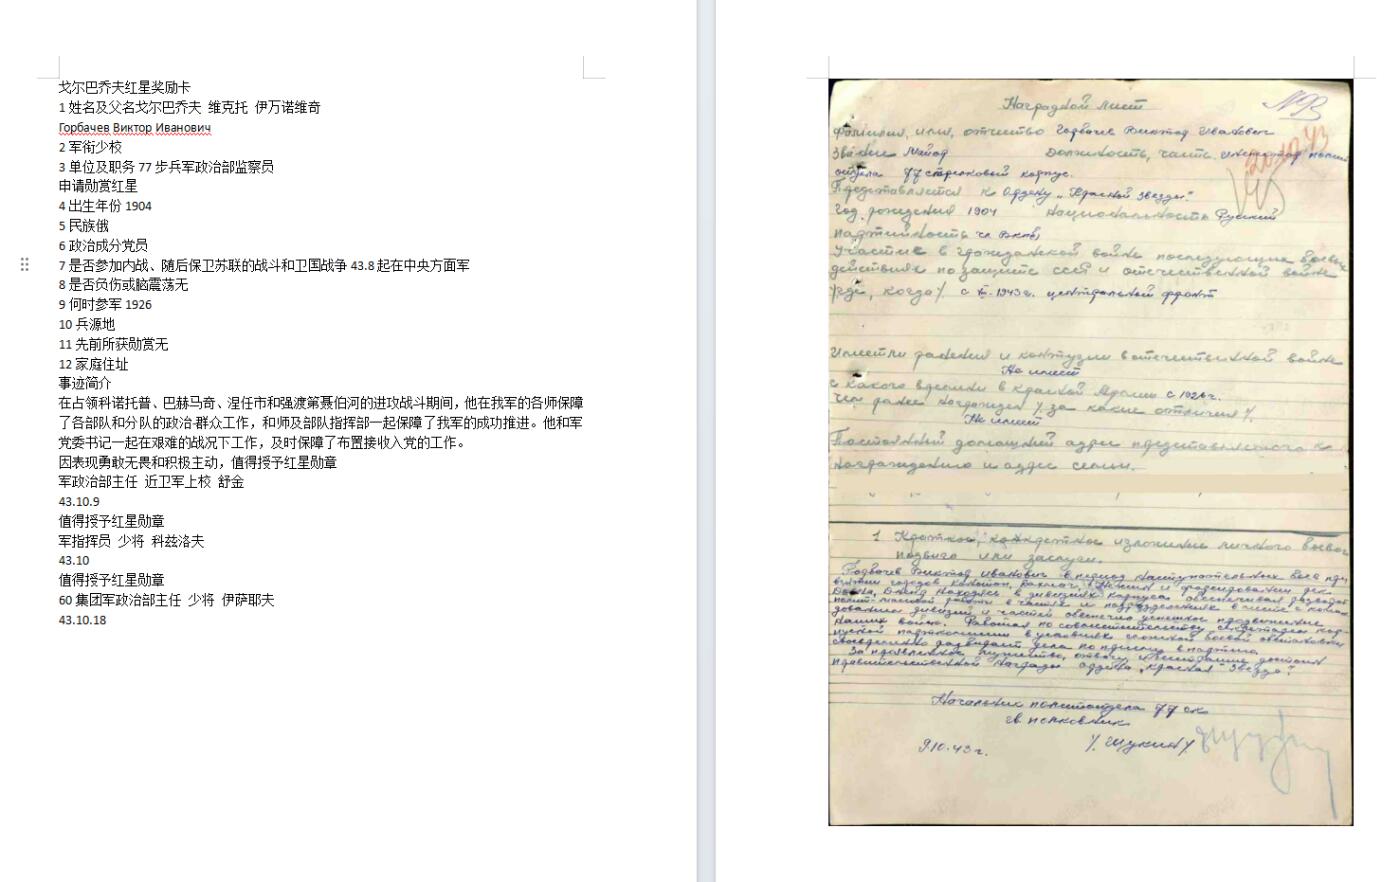 戈尔巴乔夫红星奖励卡
1 姓名及父名戈尔巴乔夫 维克托 伊万诺维奇
Горбачев Виктор Иванович
2 军衔少校
3 单位及职务 77 步兵军政治部监察员
申请勋赏红星
4 出生年份 1904
5 民族俄
6 政治成分党员
7 是否参加内战、随后保卫苏联的战斗和卫国战争 43.8 起在中央方面军
8 是否负伤或脑震荡无
9 何时参军 1926
10 兵源地
11 先前所获勋赏无
12 家庭住址
事迹简介
在占领科诺托普、巴赫马奇、涅任市和强渡第聂伯河的进攻战斗期间，他在我军的各师保障
了各部队和分队的政治-群众工作，和师及部队指挥部一起保障了我军的成功推进。他和军
党委书记一起在艰难的战况下工作，及时保障了布置接收入党的工作。
因表现勇敢无畏和积极主动，值得授予红星勋章
军政治部主任 近卫军上校 舒金
43.10.9
值得授予红星勋章
军指挥员 少将 科兹洛夫
43.10
值得授予红星勋章
60 集团军政治部主任 少将 伊萨耶夫
43.10.18
Наградной лист
Фамилия, имя, отчество Горбачев Виктор Иванович
Звание Майор Должность, часть
отдела 77 стрелковый корпус.
Представляется к Ордену „Красной Звезды"
Год рождения 1904 Национальность Русский
партийность чл ВКП(б)
Участие в гражданской войне последующие боевых
действиях по защите СССР и отечественной войне
/где, когда/ 1943г. центральный фронт
Имеет ли ранения и контузии в отечественной войне
Не имеет
с какого времени в Красной Армии с 1926г.
Чем ранее награжден /за какие отличия/.
Не имеет
Постоянный домашний адрес представляемого к
награждению и адрес семьи.
1 Краткое, конкретное изложение личного боевого
подвига или заслуги.
Горбачев Виктор Иванович в период наступательных боев при
взятии городов Конотоп, Бахмач, Нежин и форсировании рек
Десна, Днепр находясь в дивизиях корпуса обеспечивал
работы в частях и подразделениях вместе с
дованием дивизий и частей обеспечил успешное продвижение
наших войск. Работая по совместительству секретарем
пусной парткомиссии в условиях сложной боевой обстановки
своевременно разбирает дела по приему в партию.
За проявленное мужество, отвагу достоин
правительственной награды ордена „Красная Звезда".
Начальник политотдела 77 ск
гв полковник
9.10.43г. /Шукин/